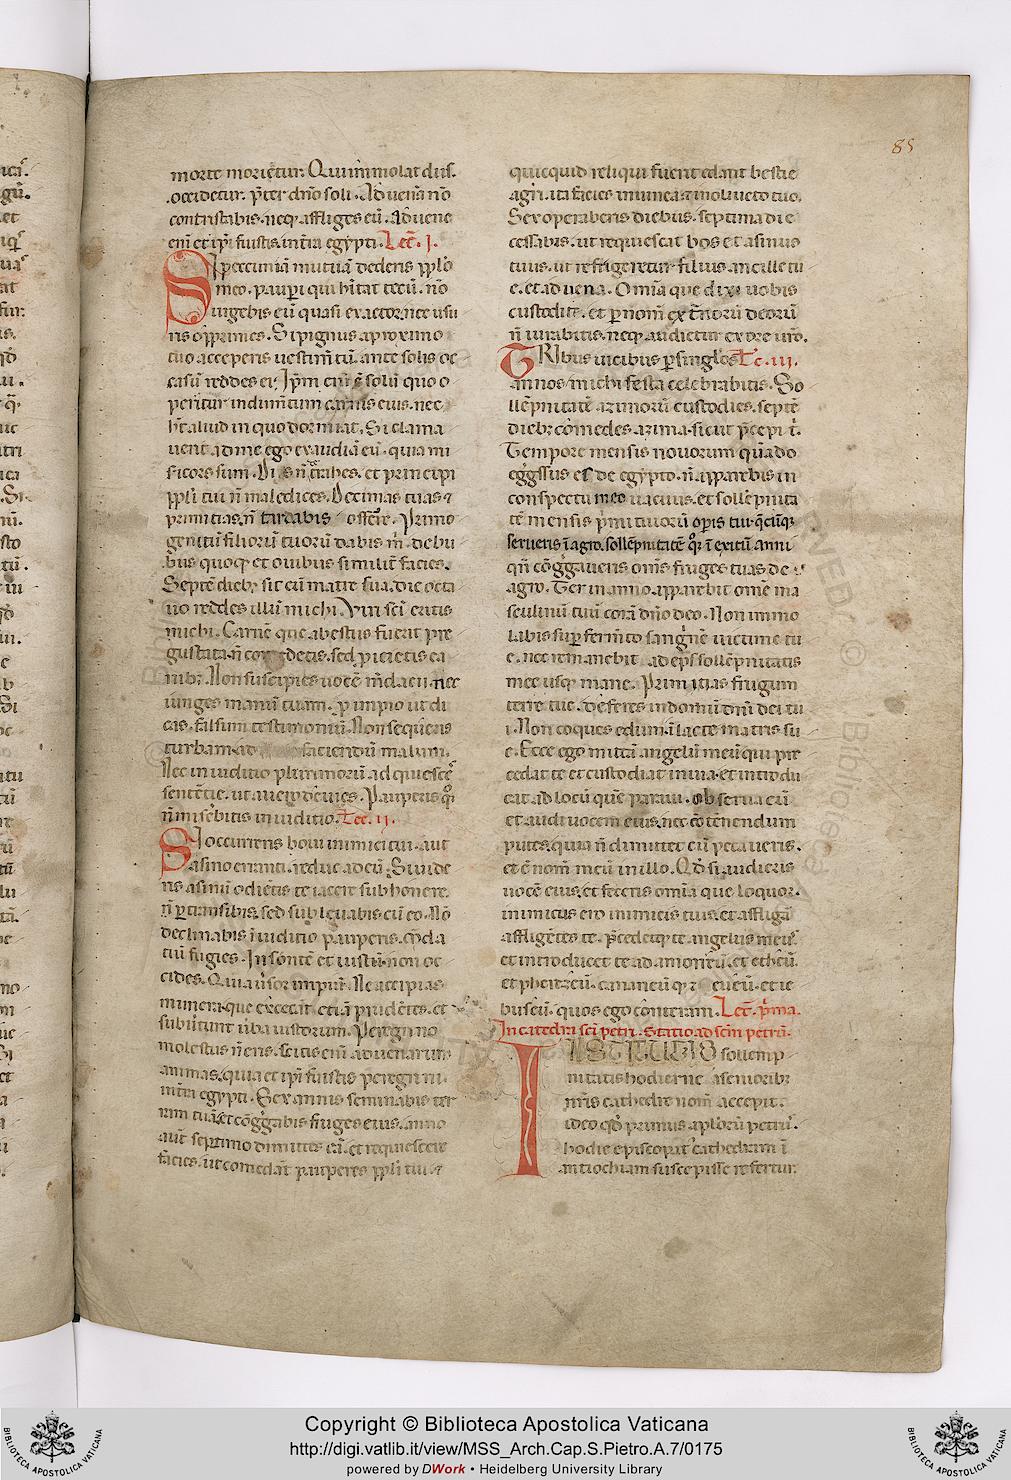 85
morte morietur. Qui immolat diis.
occidetur. pter dno soli. Aduena no
contristabis. neq; affliges eu. Aduene
eni et ipi fuistis in tra egypti. Lec. I.
Si peccuniā mutuā dederis pplo
meo. paupi qui hitat tecū. nō
uirgebis eū quasi exactor. nec usu
ris opprimes. Si pignus a proximo
tuo acceperis uestimtū. ante solis oc
casū reddes ei. Ipm eni ē solū quo o
peritur indumtum carnis eius. nec
ht aliud in quo dormiat. Si clama
uerit ad me ego exaudiā eū. quia mi
sicors sum. Diis n trahes. et principi
ppli tui n maledices. Decimas tuas 7
primitias. n tardabis offerre. Primo
genitū filiorū tuorū dabis m. de bu
bus quoq; et ouibus similit facies.
Septē dieb; sit cū matre sua. die octa
uo reddes illū michi. Viri sci eritis
michi. Carnē que a bestiis fuerit pre
gustata. n comedetis. sed picietis ca
nib;. Non suscipies uocē mdacii. nec
iunges manū tuam. p impio ut di
cas. falsum testimoniū. Non sequeris
turbam. ad faciendū malum.
Nec in iuditio plurimorū adquiesces
sentētie. ut a uero deuies. Pauperis qq;
n misebitis in iuditio. Lec. II.
Si occurreris boui inimici tui. aut
asino erranti. reduc ad eū. Si uide
ris asinū odietis te iacere sub honere.
n ptransibis. sed subleuabis cū eo. Nō
declinabis i iuditio pauperis. mda
tiū fugies. Insontē et iustū non oc
cides. Quia uersor impiū. Ne accipias
munera. que excecāt etiā prudētes. et
subuertunt uba iustorum. Peregrino
molestus n eris. scitis eni aduenarum
animas. quia et ipi fuistis peregrini
in tra egypti. Sex annis seminabis ter
ram tuā et cōggabis fruges eius. anno
aut septimo dimittes eā. et requiescere
facies. ut comedāt pauperes ppli tui. 7
quicquid reliqui fuerit edant bestie
agri. ita facies in uinea 7 in oliueto tuo.
Sex operaberis diebus. septima die
cessabis. ut requiescat bos et asinus
tuus. ut refrigeretur filius ancille tu
e. et aduena. Omia que dixi uobis
custodite. et p nom ext noru deorū
n iurabitis. neq; audietur ex ore uro.
TRIbus uicibus p singlos Lec. III.
annos michi festa celebrabitis. So
llepnitatē azimorū custodies. septē
dieb; comedes azima. sicut pcepi t.
Tempore mensis nouorum quādo
egressus es de egypto. n apparebis in
conspectu meo uacuus. et sollepnita
tē mensis pmitiuorū opis tui. qcūq;
serueris i agro. sollepnitatē qq; i exitu anni
qn cōggaueris oms fruges tuas de
agro. Ter in anno apparebit omē ma
sculinū tuū corā dno deo. Non immo
labis sup fermto sanguinē uictime tu
e. nec remanebit adeps sollepnitatis
mee usq; mane. Primitias frugum
terre tue. deferes in domū dni dei tu
i. Non coques edum i lacte matris su
e. Ecce ego mittā angelū meū qui pre
cedat te et custodiat in uia. et introdu
cat ad locū quē paraui. obserua eū
et audi uocem eius. nec cōtēnendum
putes. quia n dimittet cū peccaueris.
et ē nom meū in illo. Qd si audieris
uocē eius. et feceris omia que loquor.
inimicus ero inimicis tuis. et affligā
affligētes te. Pcedetq; te angelus meus.
et introducet te ad amorreū. et etheū.
et pherezeū. cananeū q; 7 eueū. et ie
buseū. quos ego conteram. Lec. pma.
In catedra sci petri. Statio ad scm petrū.
INSTITUTIO sollemp
nitatis hodierne a seniorib;
nris cathedre nom accepit.
ideo qd primus aplorū petrus.
hodie episcopat cathedram i
antiochiam suscepisse refertur.
Copyright © Biblioteca Apostolica Vaticana
http://digi.vatlib.it/view/MSS_Arch.Cap.S.Pietro.A.7/0175
powered by DWork • Heidelberg University Library